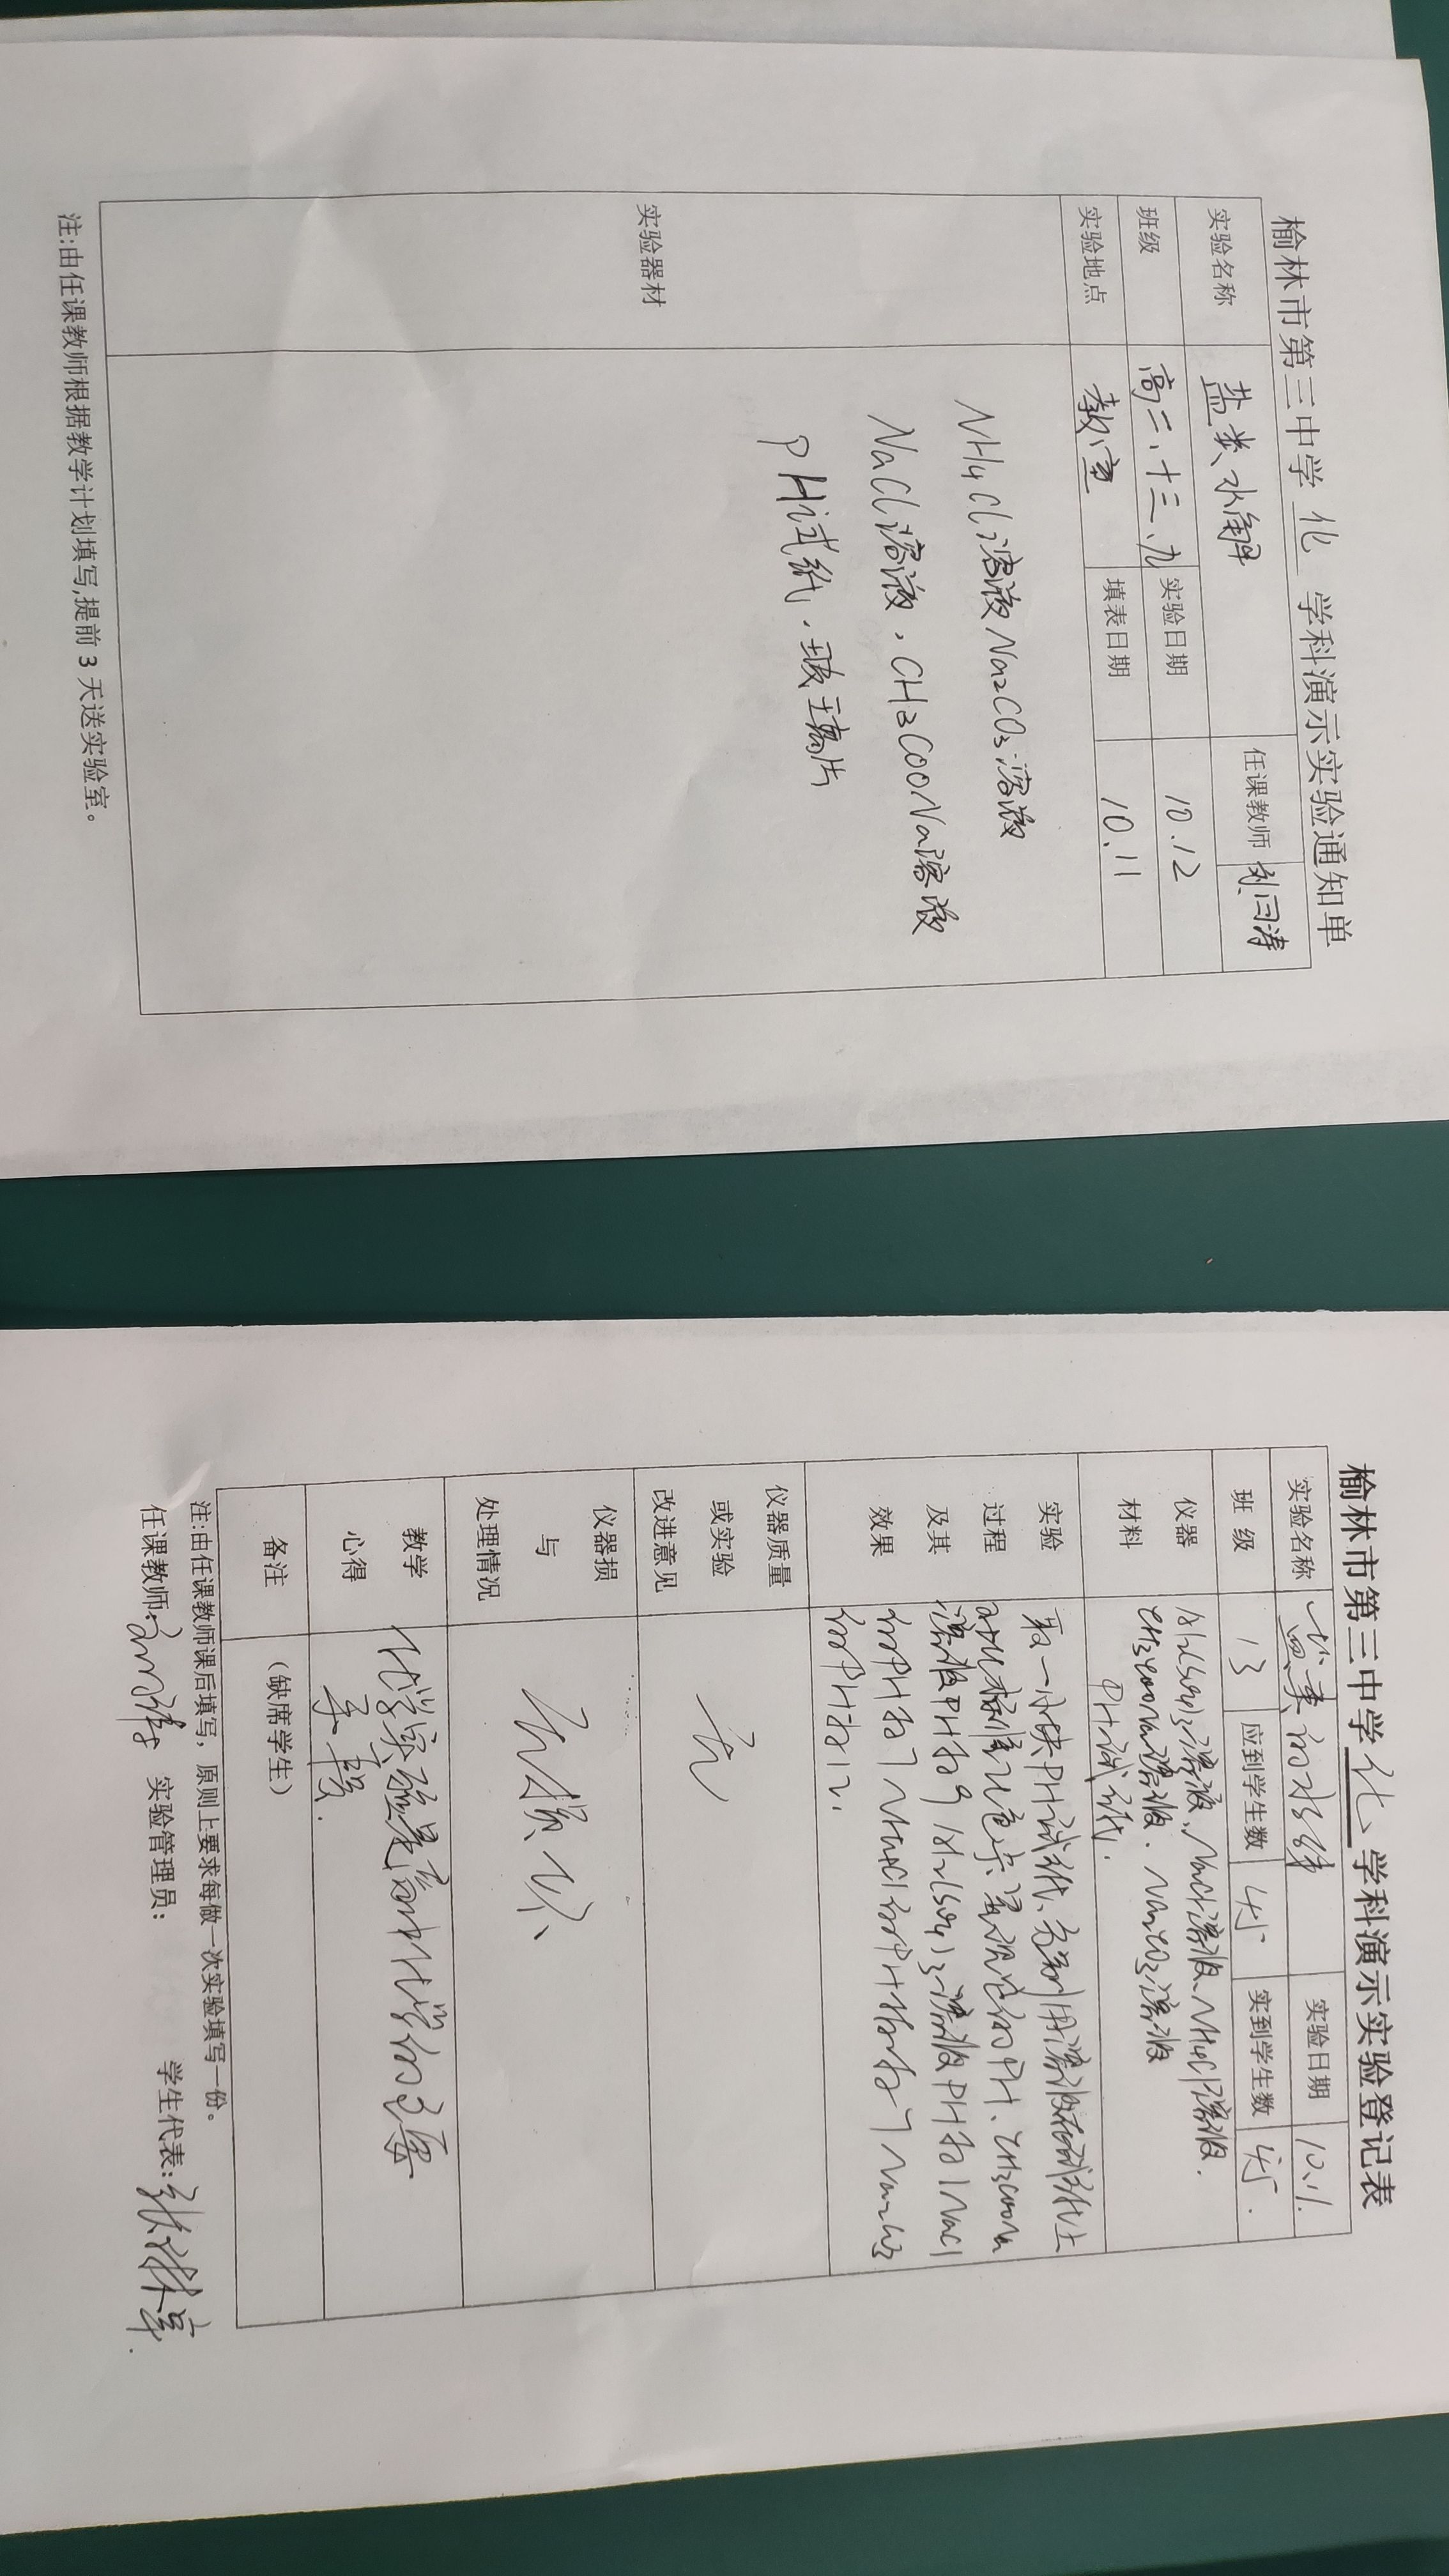 榆林市第三中学 化 学科演示实验通知单
实验名称 盐类水解 任课教师 刘闫涛
班级 高二、十三、九 实验日期 10.12
实验地点 教室 填表日期 10.11
实验器材
NH4Cl溶液 Na2CO3溶液
NaCl溶液,CH3COONa溶液
PH试纸,玻璃片
注:由任课教师根据教学计划填写,提前 3 天送实验室。
榆林市第三中学 化 学科演示实验登记表
实验名称 盐类的水解 实验日期
班 级 13 应到学生数 实到学生数
仪器
材料
Al2(SO4)3溶液、NaCl溶液、NH4Cl溶液.
CH3COONa溶液. Na2CO3溶液
PH试纸.
实验
过程
及其
效果
取一小块PH试纸、分别用溶液在试纸上
CH3COONa
溶液PH为9 Al2(SO4)3溶液PH为1 NaCl
的PH为7 NH4Cl的PH为7 Na2CO3
的PH为12.
仪器质量
或实验
改进意见
无
仪器损
与
处理情况
无损坏
教学
心得
化学实验是高中化学的主要
备注 (缺席学生)
注:由任课教师课后填写,原则上要求每做一次实验填写一份。
任课教师: 实验管理员: 学生代表: